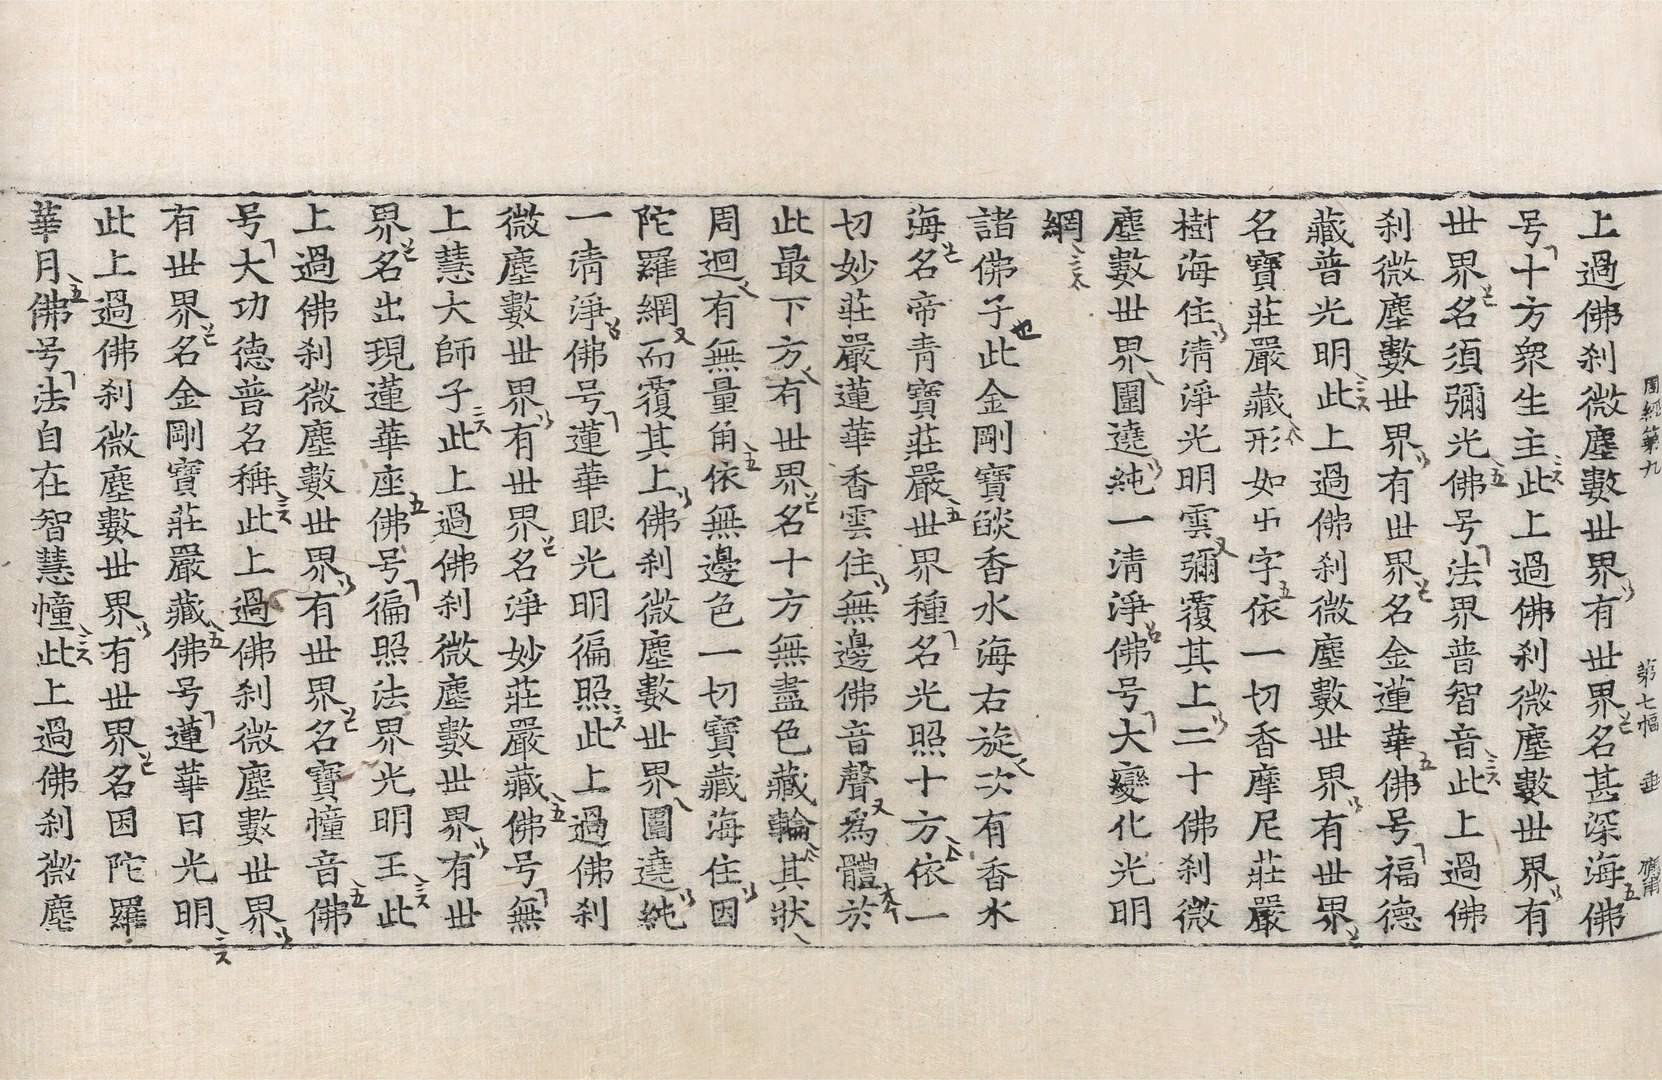 周經第九 第七幅
上過佛刹微塵數世界有世界名甚深海佛
号十方衆生主此上過佛刹微塵數世界有
世界名須彌光佛号法界普智音此上過佛
刹微塵數世界有世界名金蓮華佛号福德
藏普光明此上過佛刹微塵數世界有世界
名寶莊嚴藏形如卐字依一切香摩尼莊嚴
樹海住清淨光明雲彌覆其上二十佛刹微
塵數世界圍遶純一清淨佛号大變化光明
網
諸佛子此金剛寶燄香水海右旋次有香水
海名帝青寶莊嚴世界種名光照十方依一
切妙莊嚴蓮華香雲住無邊佛音聲爲體於
此最下方有世界名十方無盡色藏輪其狀
周迴有無量角依無邊色一切寶藏海住因
陀羅網而覆其上佛刹微塵數世界圍遶純
一清淨佛号蓮華眼光明徧照此上過佛刹
微塵數世界有世界名淨妙莊嚴藏佛号無
上慧大師子此上過佛刹微塵數世界有世
界名出現蓮華座佛号徧照法界光明王此
上過佛刹微塵數世界有世界名寶幢音佛
号大功德普名稱此上過佛刹微塵數世界
有世界名金剛寶莊嚴藏佛号蓮華日光明
此上過佛刹微塵數世界有世界名因陀羅
華月佛号法自在智慧幢此上過佛刹微塵